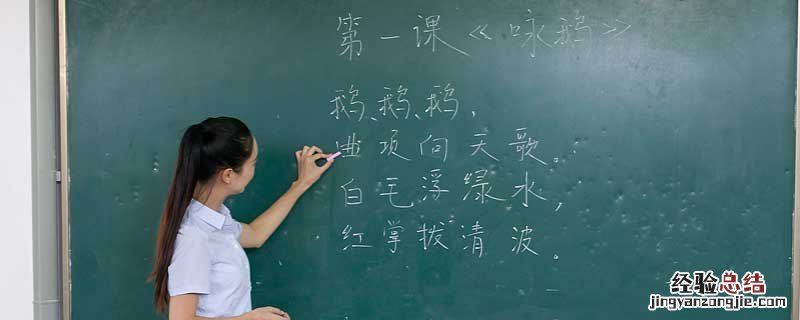 第一课《咏鹅》
鹅、鹅、鹅，
曲项向天歌。
白毛浮绿水，
红掌拨清波。
经验总结
jingyanzongjie.com